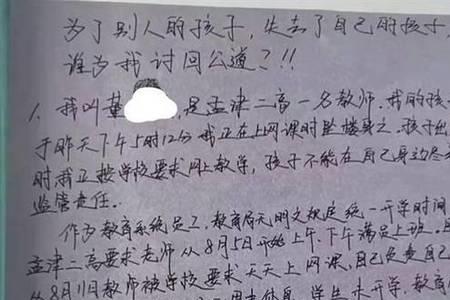 为了别人的孩子,失去了自己的孩子,
谁为我讨回公道?!!
1、我叫董 ,是孟津二高一名教师。我的孩
于昨天下午5时12分我正在上网课时坠楼身亡。孩子出
时我正按学校要求网上教学,孩子不能在自己身边尽
监管责任。
作为教育系统员工,教育局无明文规定统一开学时间
孟津二高要求老师从8月5日开始上午、下午满员上班。
从8月1日教师被学校要求天天上网课,自己负责自己
学生未开学,教育